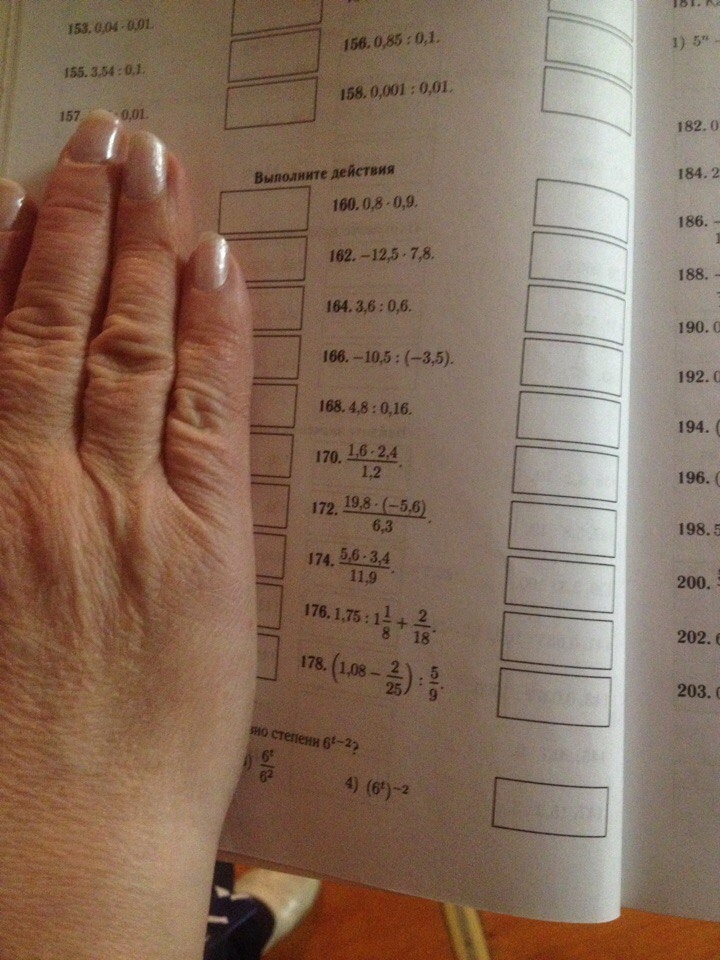 153. 0,04 · 0,01.
155. 3,54 : 0,1.
156. 0,85 : 0,1.
157. 0,01.
158. 0,001 : 0,01.
Выполните действия
160. 0,8 · 0,9.
162. −12,5 · 7,8.
164. 3,6 : 0,6.
166. −10,5 : (−3,5).
168. 4,8 : 0,16.
170. \frac{1,6 · 2,4}{1,2}.
172. \frac{19,8 · (−5,6)}{6,3}.
174. \frac{5,6 · 3,4}{11,9}.
176. 1,75 : 1\frac{1}{8} + \frac{2}{18}.
178. (1,08 − \frac{2}{25}) : \frac{5}{9}.
степени 6^{t−2}?
) \frac{6^t}{6^2}
4) (6^t)^{−2}
181.
1) 5ⁿ
182. 0
184. 2
186.
188.
190. 0
192. 0
194. (
196. (
198. 5
200.
202. 6
203.